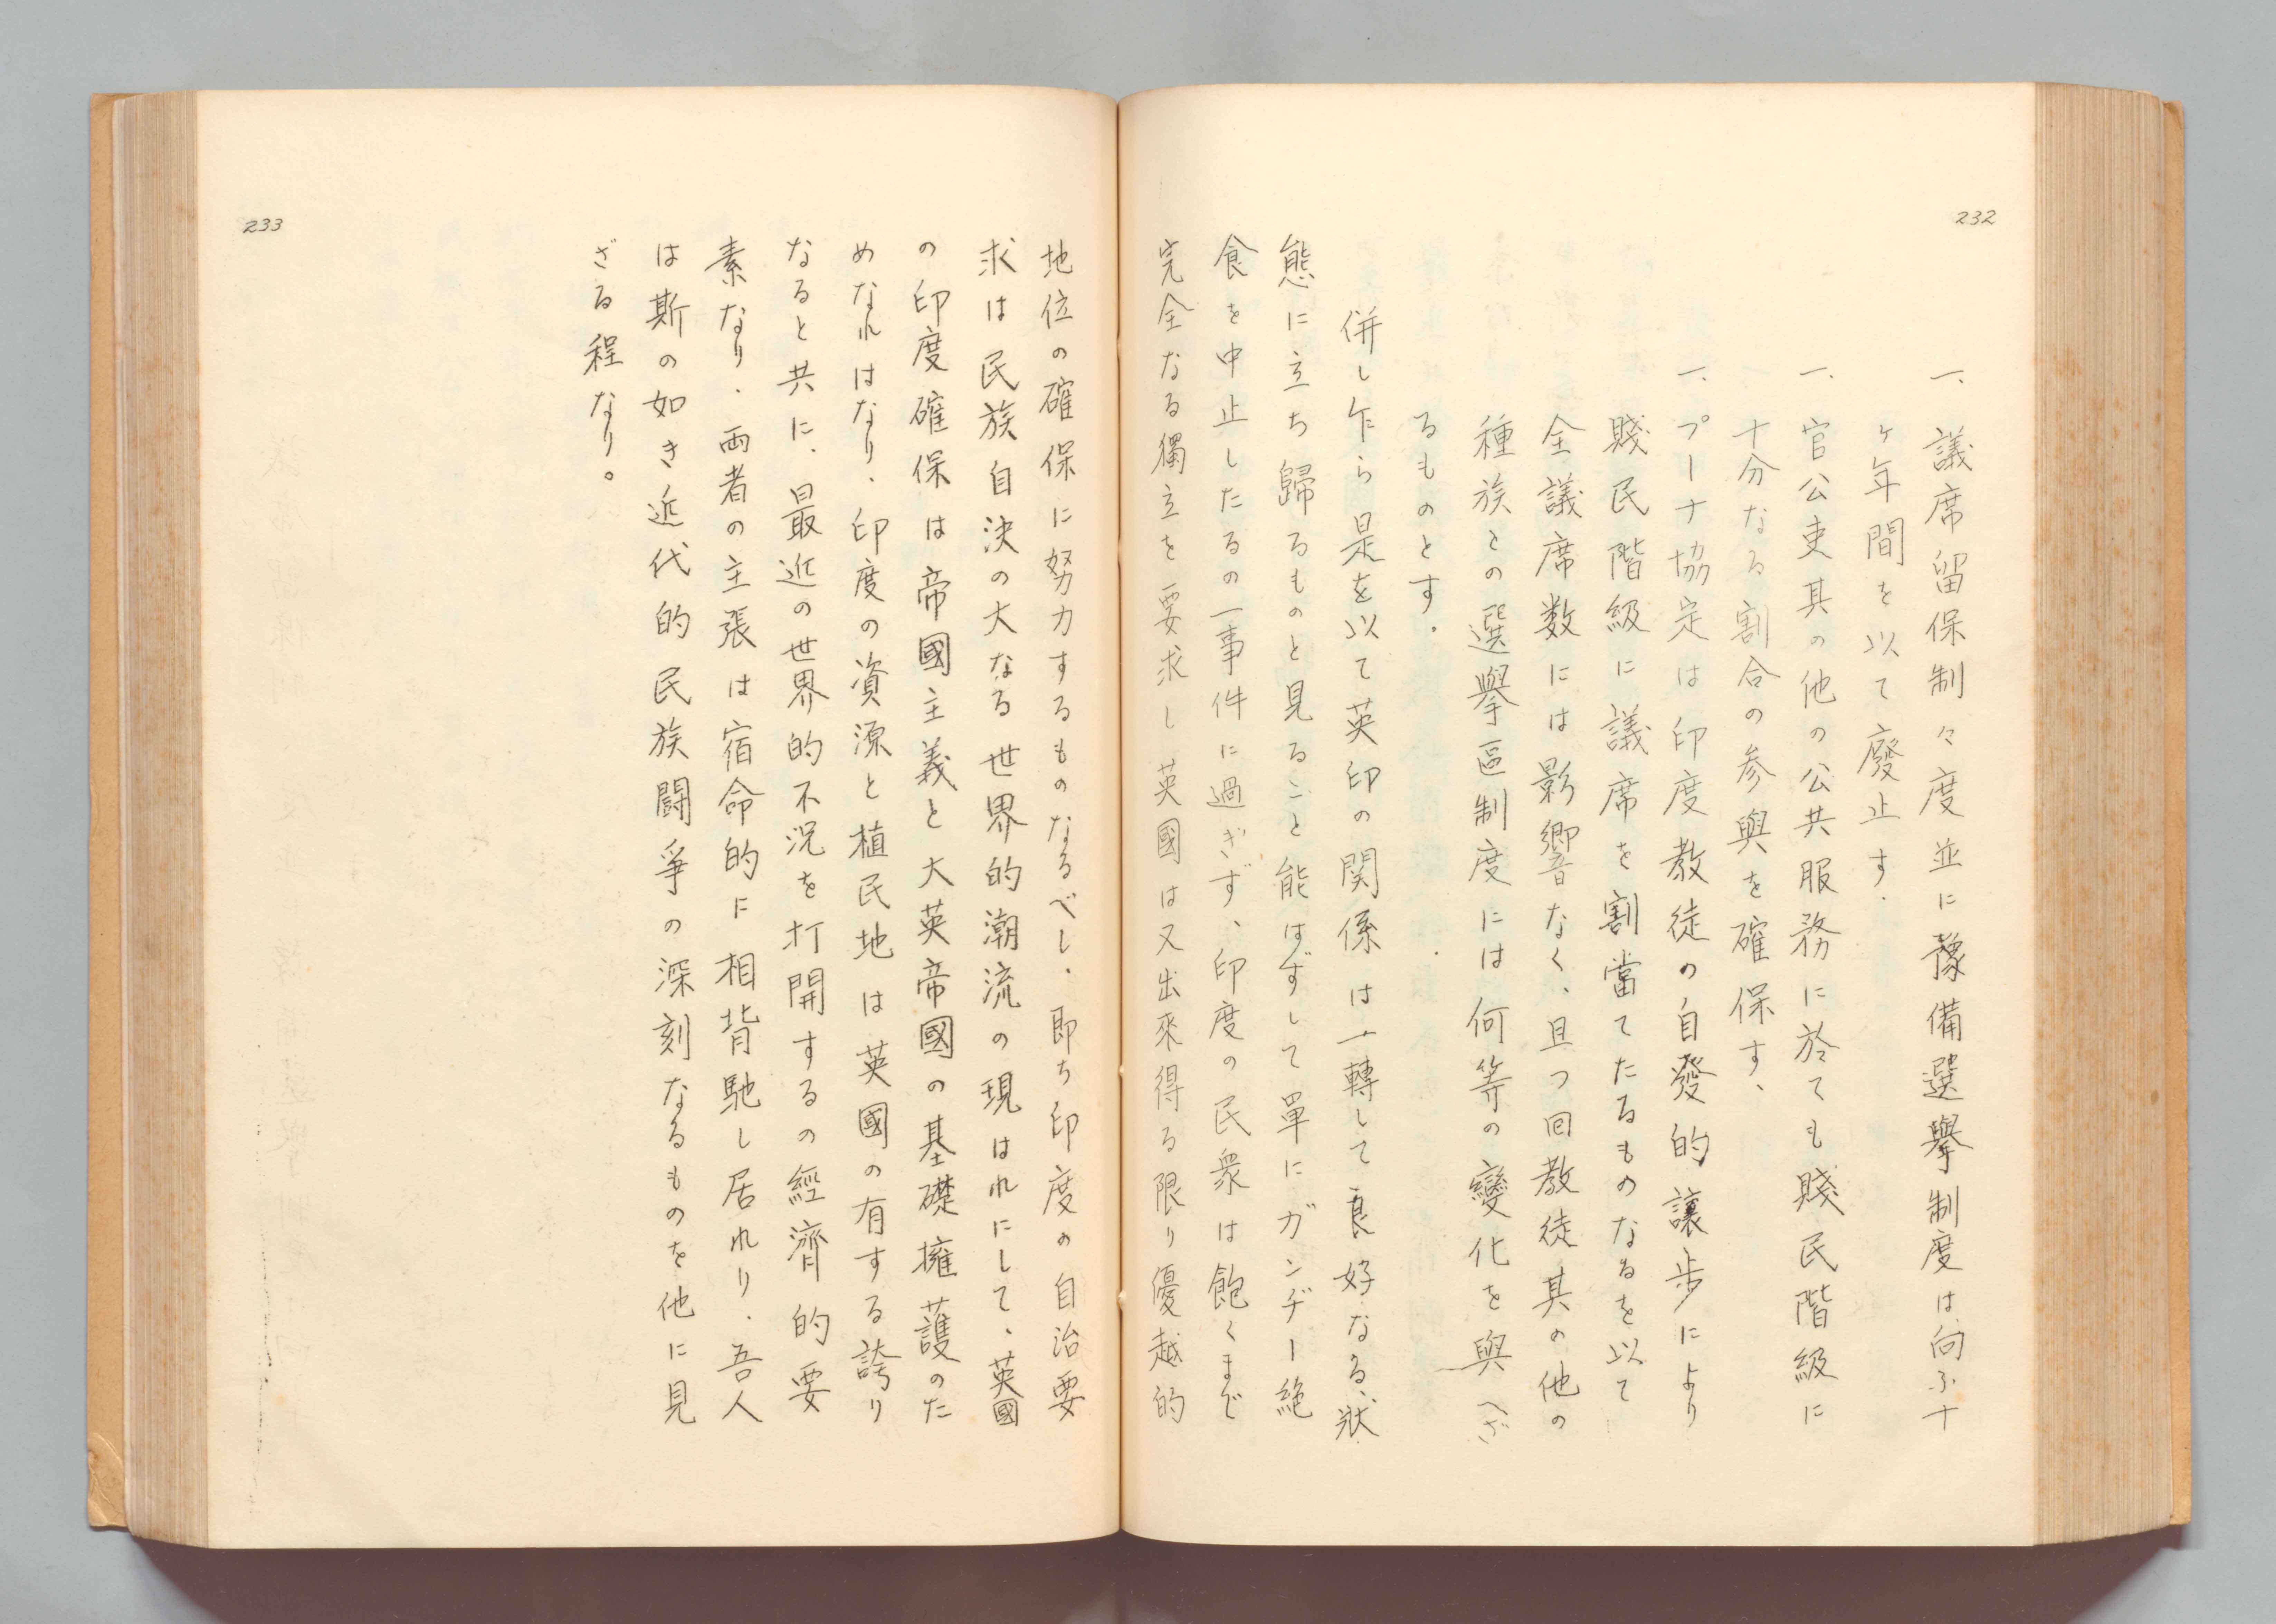 232
一、議席留保制々度並に豫備選擧制度は向ふ十
ヶ年間を以て廢止す．
一．官公吏其の他の公共服務に於ても賤民階級に
十分なる割合の参與を確保す、
一．プーナ協定は印度教徒の自發的讓歩により
賤民階級に議席を割當てたるものなるを以て
全議席数には影響なく、且つ回教徒其の他の
種族との選擧區制度には何等の變化を與へざ
るものとす．
併し乍ら是を以て英印の関係は一轉して良好なる、狀
態に立ち歸るものと見ること能はずして單にガンヂー絶
食を中止したるの一事件に過ぎず、印度の民衆は飽くまで
完全なる獨立を要求し英國は又出來得る限り優越的
地位の確保に努力するものなるべし．即ち印度の自治要
求は民族自決の大なる世界的潮流の現はれにして、英國
の印度確保は帝國主義と大英帝國の基礎擁護のた
めなればなり．印度の資源と植民地は英國の有する誇り
なると共に、最近の世界的不況を打開するの經濟的要
素なり．両者の主張は宿命的に相背馳し居れり．吾人
は斯の如き近代的民族闘爭の深刻なるものを他に見
ざる程なり。
233